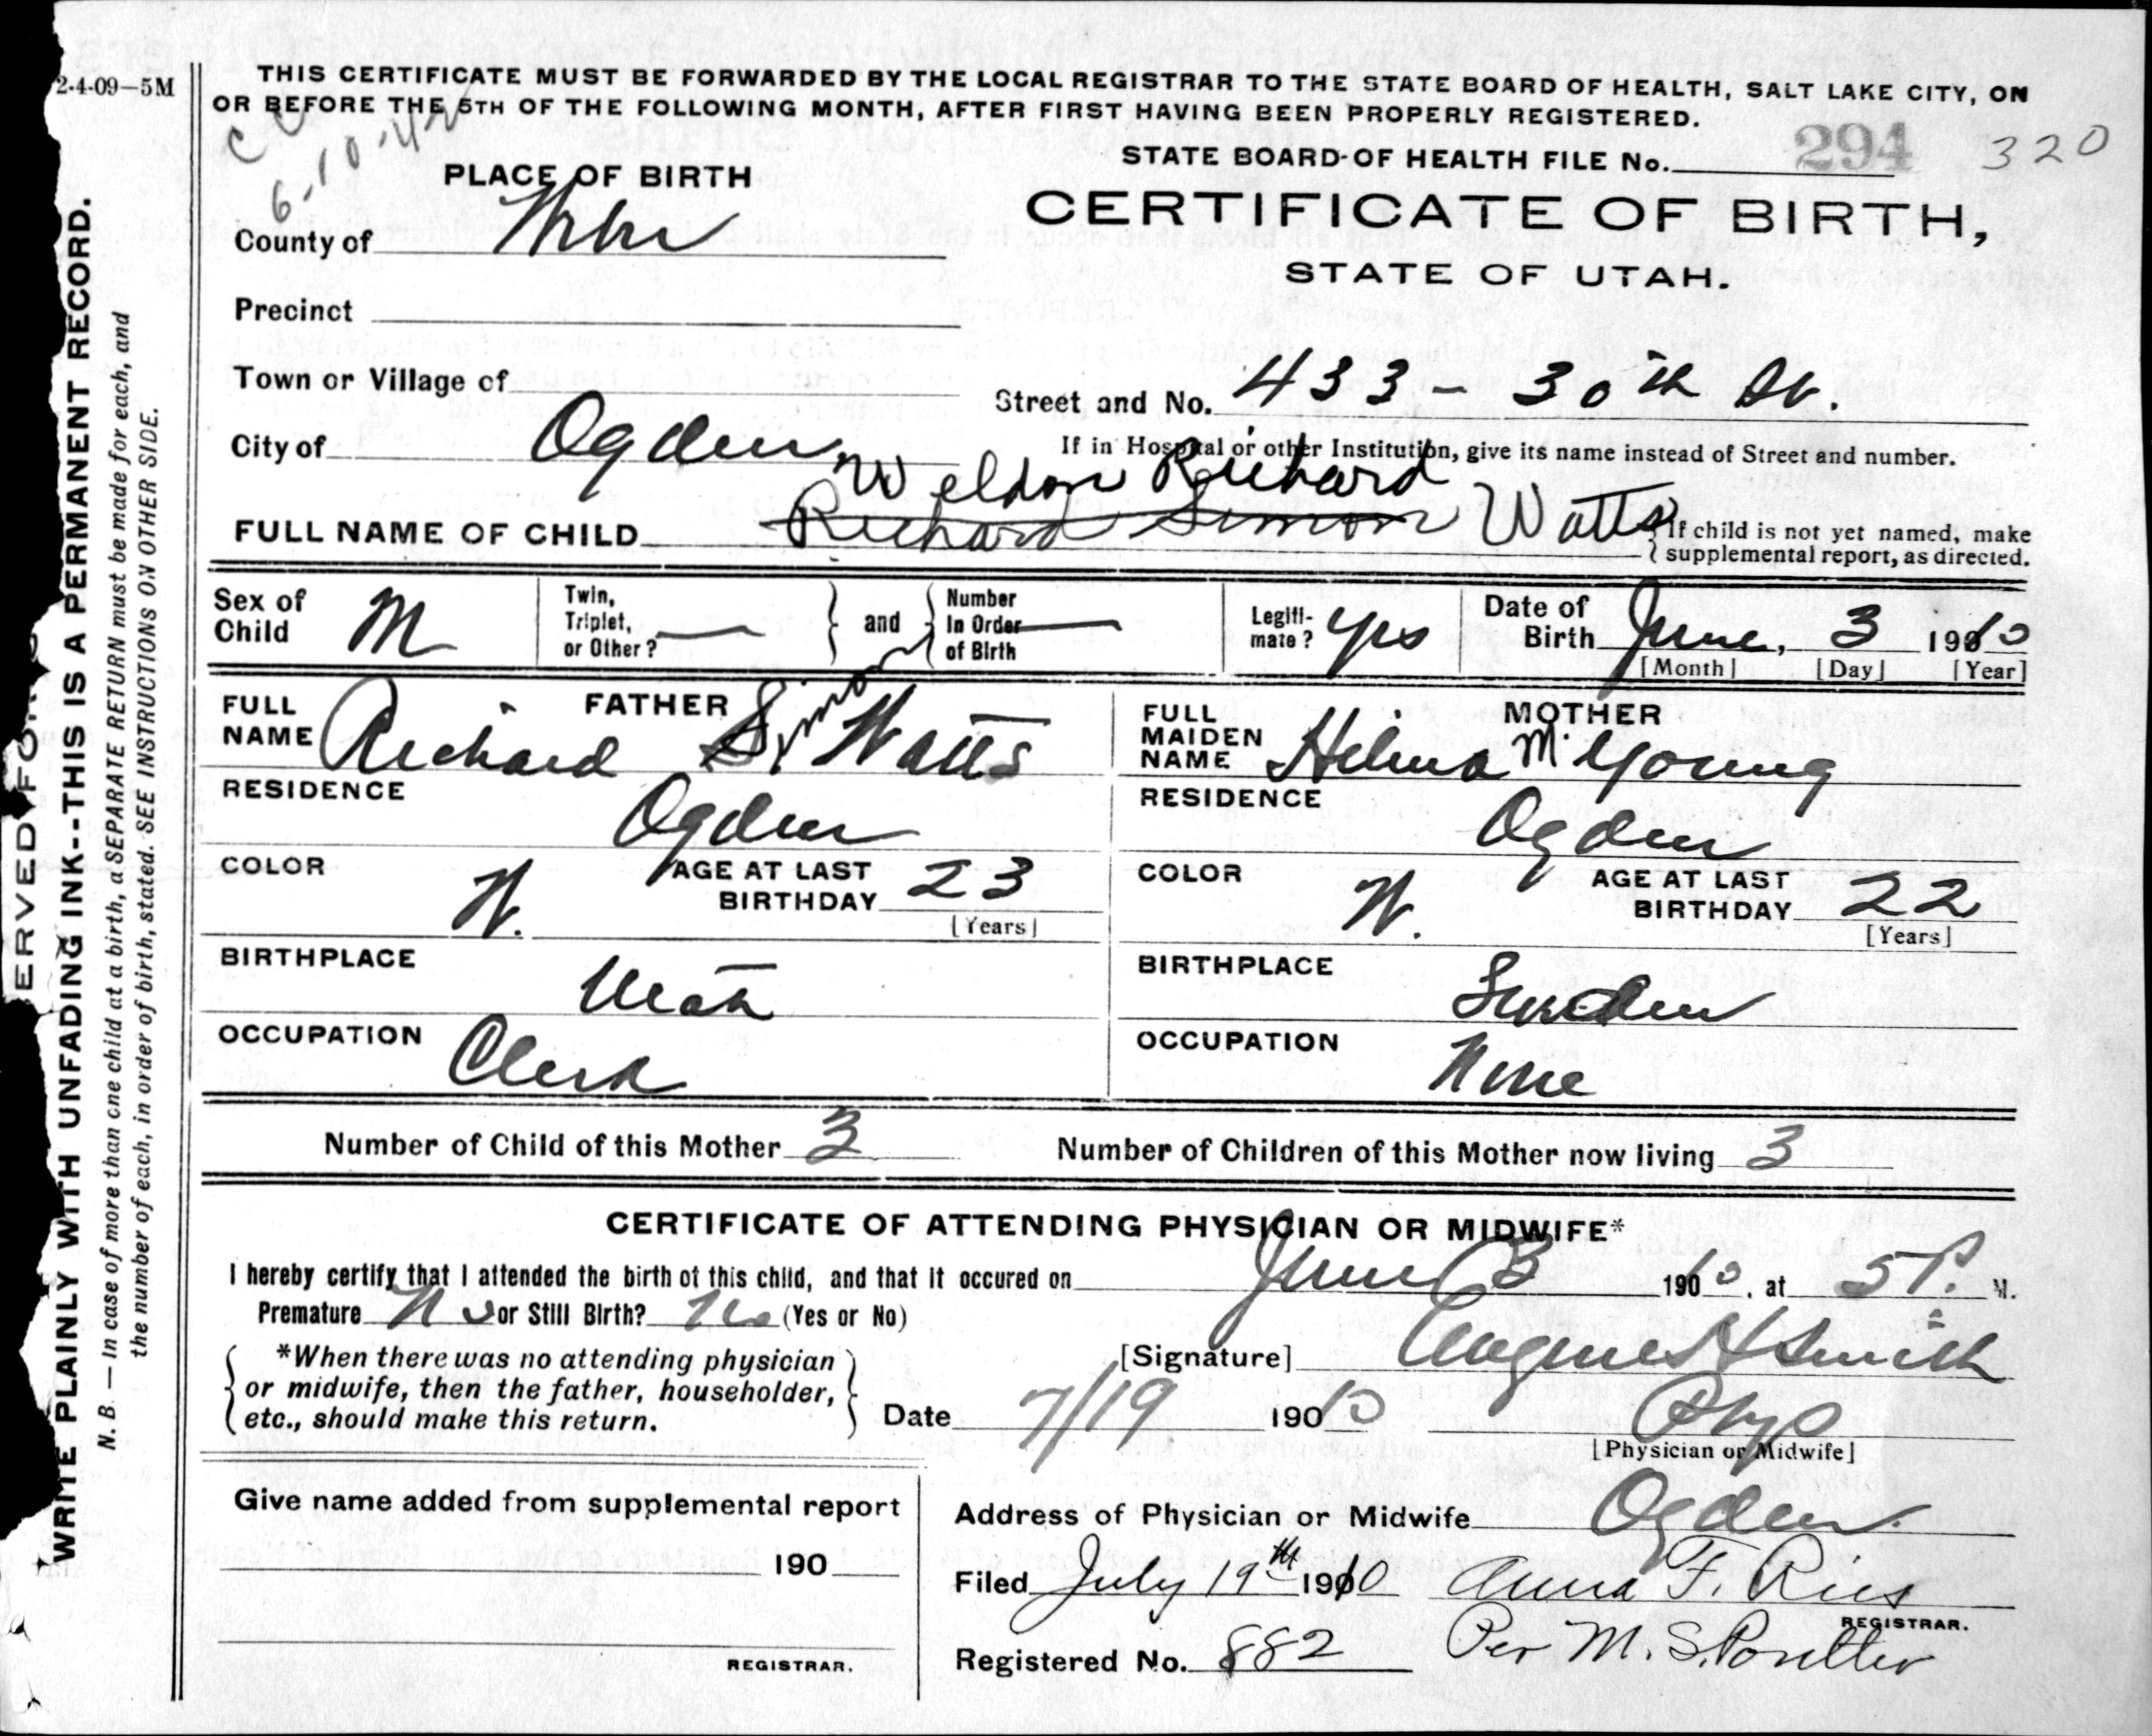 2-4-09—5M
THIS CERTIFICATE MUST BE FORWARDED BY THE LOCAL REGISTRAR TO THE STATE BOARD OF HEALTH, SALT LAKE CITY, ON
OR BEFORE THE 5TH OF THE FOLLOWING MONTH, AFTER FIRST HAVING BEEN PROPERLY REGISTERED.
6-10-42
STATE BOARD OF HEALTH FILE No. 294 320
PLACE OF BIRTH
CERTIFICATE OF BIRTH,
STATE OF UTAH.
County of Weber
Precinct
Town or Village of
Street and No. 433 - 30th St.
City of Ogden.
If in Hospital or other Institution, give its name instead of Street and number.
Weldon Richard
FULL NAME OF CHILD Richard Simon Watts
If child is not yet named, make
supplemental report, as directed.
Sex of Child M
Twin, Triplet, or Other? — and Number In Order of Birth —
Legiti-mate? yes
Date of Birth June, 3 1910
[Month] [Day] [Year]
FATHER
FULL NAME Richard Simon Watts
RESIDENCE Ogden
COLOR W. AGE AT LAST BIRTHDAY 23
[Years]
BIRTHPLACE Utah
OCCUPATION Clerk
MOTHER
FULL MAIDEN NAME Hilma M. Young
RESIDENCE Ogden
COLOR W. AGE AT LAST BIRTHDAY 22
[Years]
BIRTHPLACE Sweden
OCCUPATION None
Number of Child of this Mother 3 Number of Children of this Mother now living 3
CERTIFICATE OF ATTENDING PHYSICIAN OR MIDWIFE*
I hereby certify that I attended the birth of this child, and that it occured on June 3 1910, at 5 P. M.
Premature No or Still Birth? No (Yes or No)
*When there was no attending physician
or midwife, then the father, householder,
etc., should make this return.
[Signature] Eugene H Smith
Date 7/19 1910 Phys
[Physician or Midwife]
Give name added from supplemental report
190
REGISTRAR.
Address of Physician or Midwife Ogden.
Filed July 19th 1910 Anna F. Ries
REGISTRAR.
Registered No. 882 Per M. S. Poulter
WRITE PLAINLY WITH UNFADING INK--THIS IS A PERMANENT RECORD.
N. B. — In case of more than one child at a birth, a SEPARATE RETURN must be made for each, and
the number of each, in order of birth, stated. SEE INSTRUCTIONS ON OTHER SIDE.